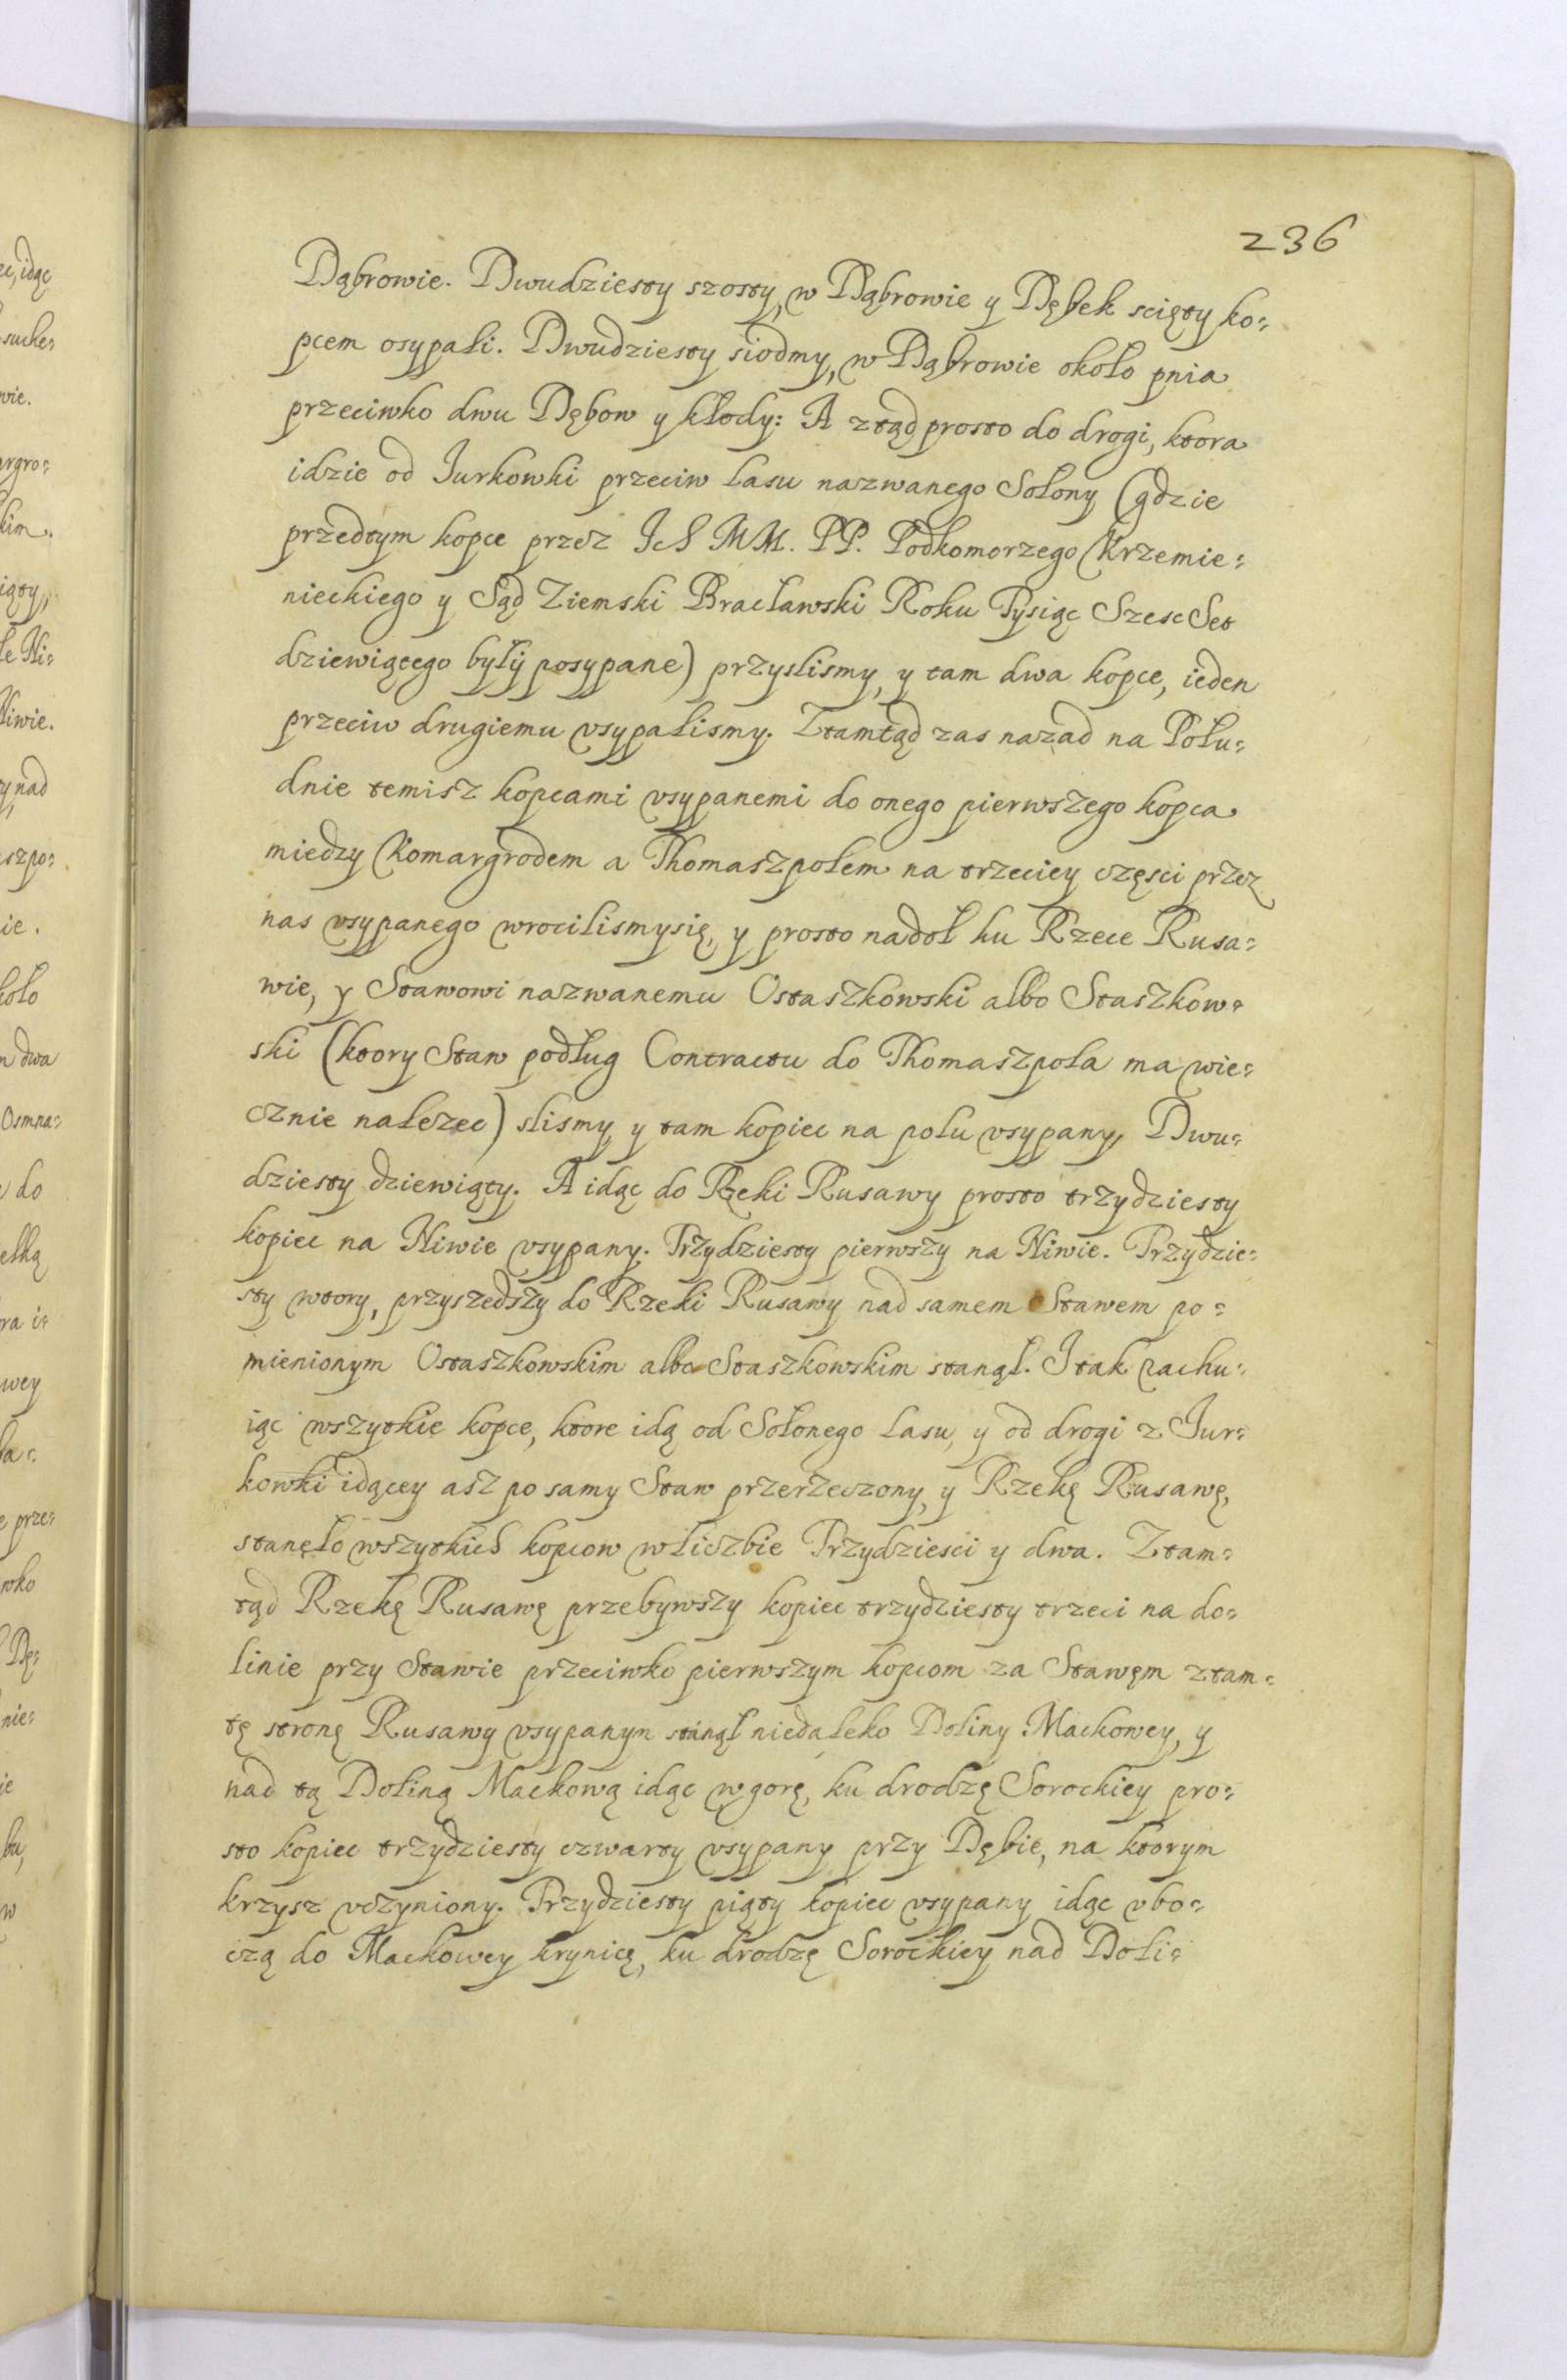 236
Dąbrowie. Dwudziesty szosty, w Dąbrowie y Dębek scięty ko=
pcem osypali. Dwudziesty siodmy, w Dąbrowie około pnia
przeciwko dwu Dębow y kłody: A ztąd prosto do drogi, ktora
idzie od Jurkowki przeciw lasu nazwanego Sołony (gdzie
przedtym kopce przez Ich MM. PP. Podkomorzego Krzemie=
nieckiego y Sąd Ziemski Bracławski Roku Tysiąc Szesc Set
dziewiącego były posypane) przyslismy, y tam dwa kopce, ieden
przeciw drugiemu vsypalismy. Ztamtąd zas nazad na Połu=
dnie temisz kopcami vsypanemi do onego pierwszego kopca
miedzy Komargrodem a Thomaszpolem na trzeciey częsci przez
nas vsypanego wrocilismysię, y prosto nadoł ku Rzece Rusa=
wie, y Stawowi nazwanemu Ostaszkowski albo Staszkow=
ski (ktory Staw podług Contractu do Thomaszpola ma wie=
cznie nalezec) slismy y tam kopiec na polu vsypany, Dwu=
dziesty dziewiąty. A idąc do Rzeki Rusawy prosto trzydziesty
kopiec na Niwie vsypany. Trzydziesty pierwszy na Niwie. Trzydzie=
sty wtory, przyszedszy do Rzeki Rusawy nad samem Stawem po=
mienionym Ostaszkowskim albo Staszkowskim stanął. I tak rachu=
iąc wszytkie kopce, ktore idą od Sołonego lasu, y od drogi z Jur=
kowki idącey asz po samy Staw przerzeczony, y Rzekę Rusawę,
stanęło wszytkich kopcow w liczbie Trzydziesci y dwa. Ztam=
tąd Rzekę Rusawę przebywszy kopiec trzydziesty trzeci na do=
linie przy Stawie przeciwko pierwszym kopcom za Stawęm z tam=
tę stronę Rusawy vsypanym stanął niedaleko Doliny Mackowey, y
nad tą Doliną Mackową idąc w gorę, ku drodzę Sorockiey pro=
sto kopiec trzydziesty czwarty vsypany przy Dębie, na ktorym
krzysz vczyniony. Trzydziesty piąty kopiec vsypany idąc vbo=
czą do Mackowey krynicę, ku drodzę Sorockiey nad Doli=